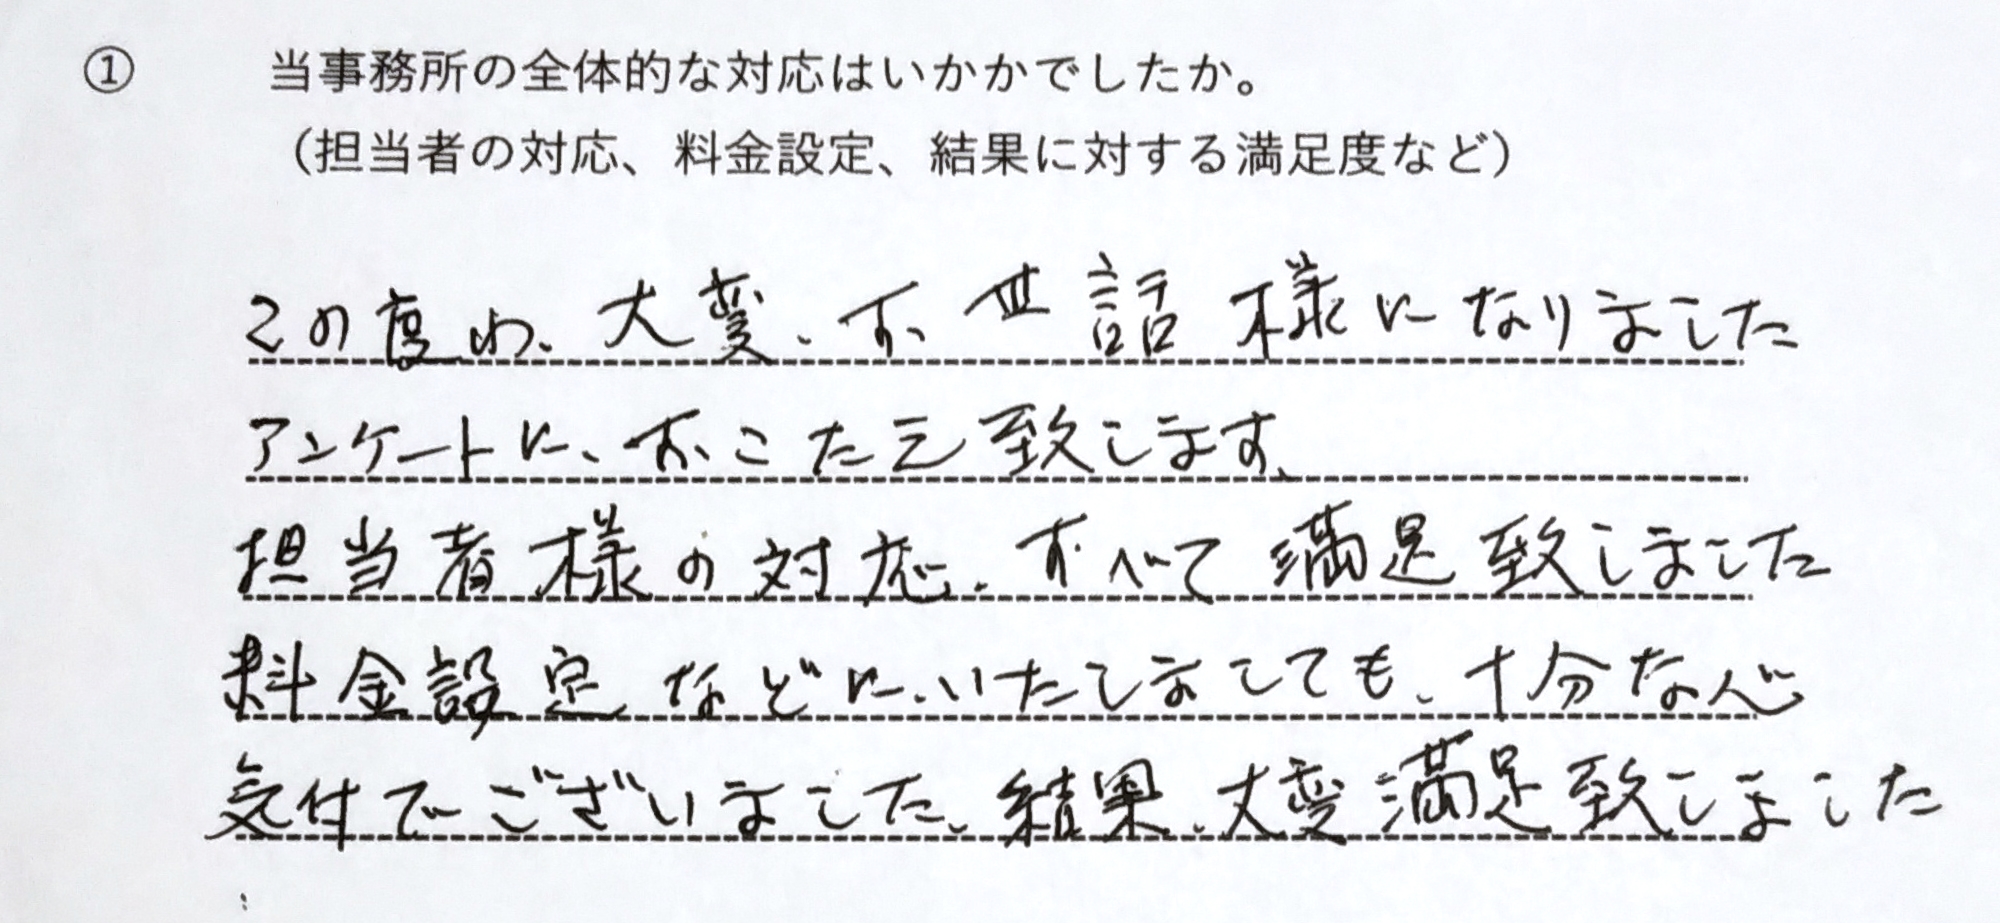 ① 当事務所の全体的な対応はいかかでしたか。
（担当者の対応、料金設定、結果に対する満足度など）
この度わ、大変、お世話様になりました
アンケートに、おこたえ致します、
担当者様の対応、すべて満足致しました
料金設定などに、いたしましても、十分な心
気付でございました、結果、大変満足致しました